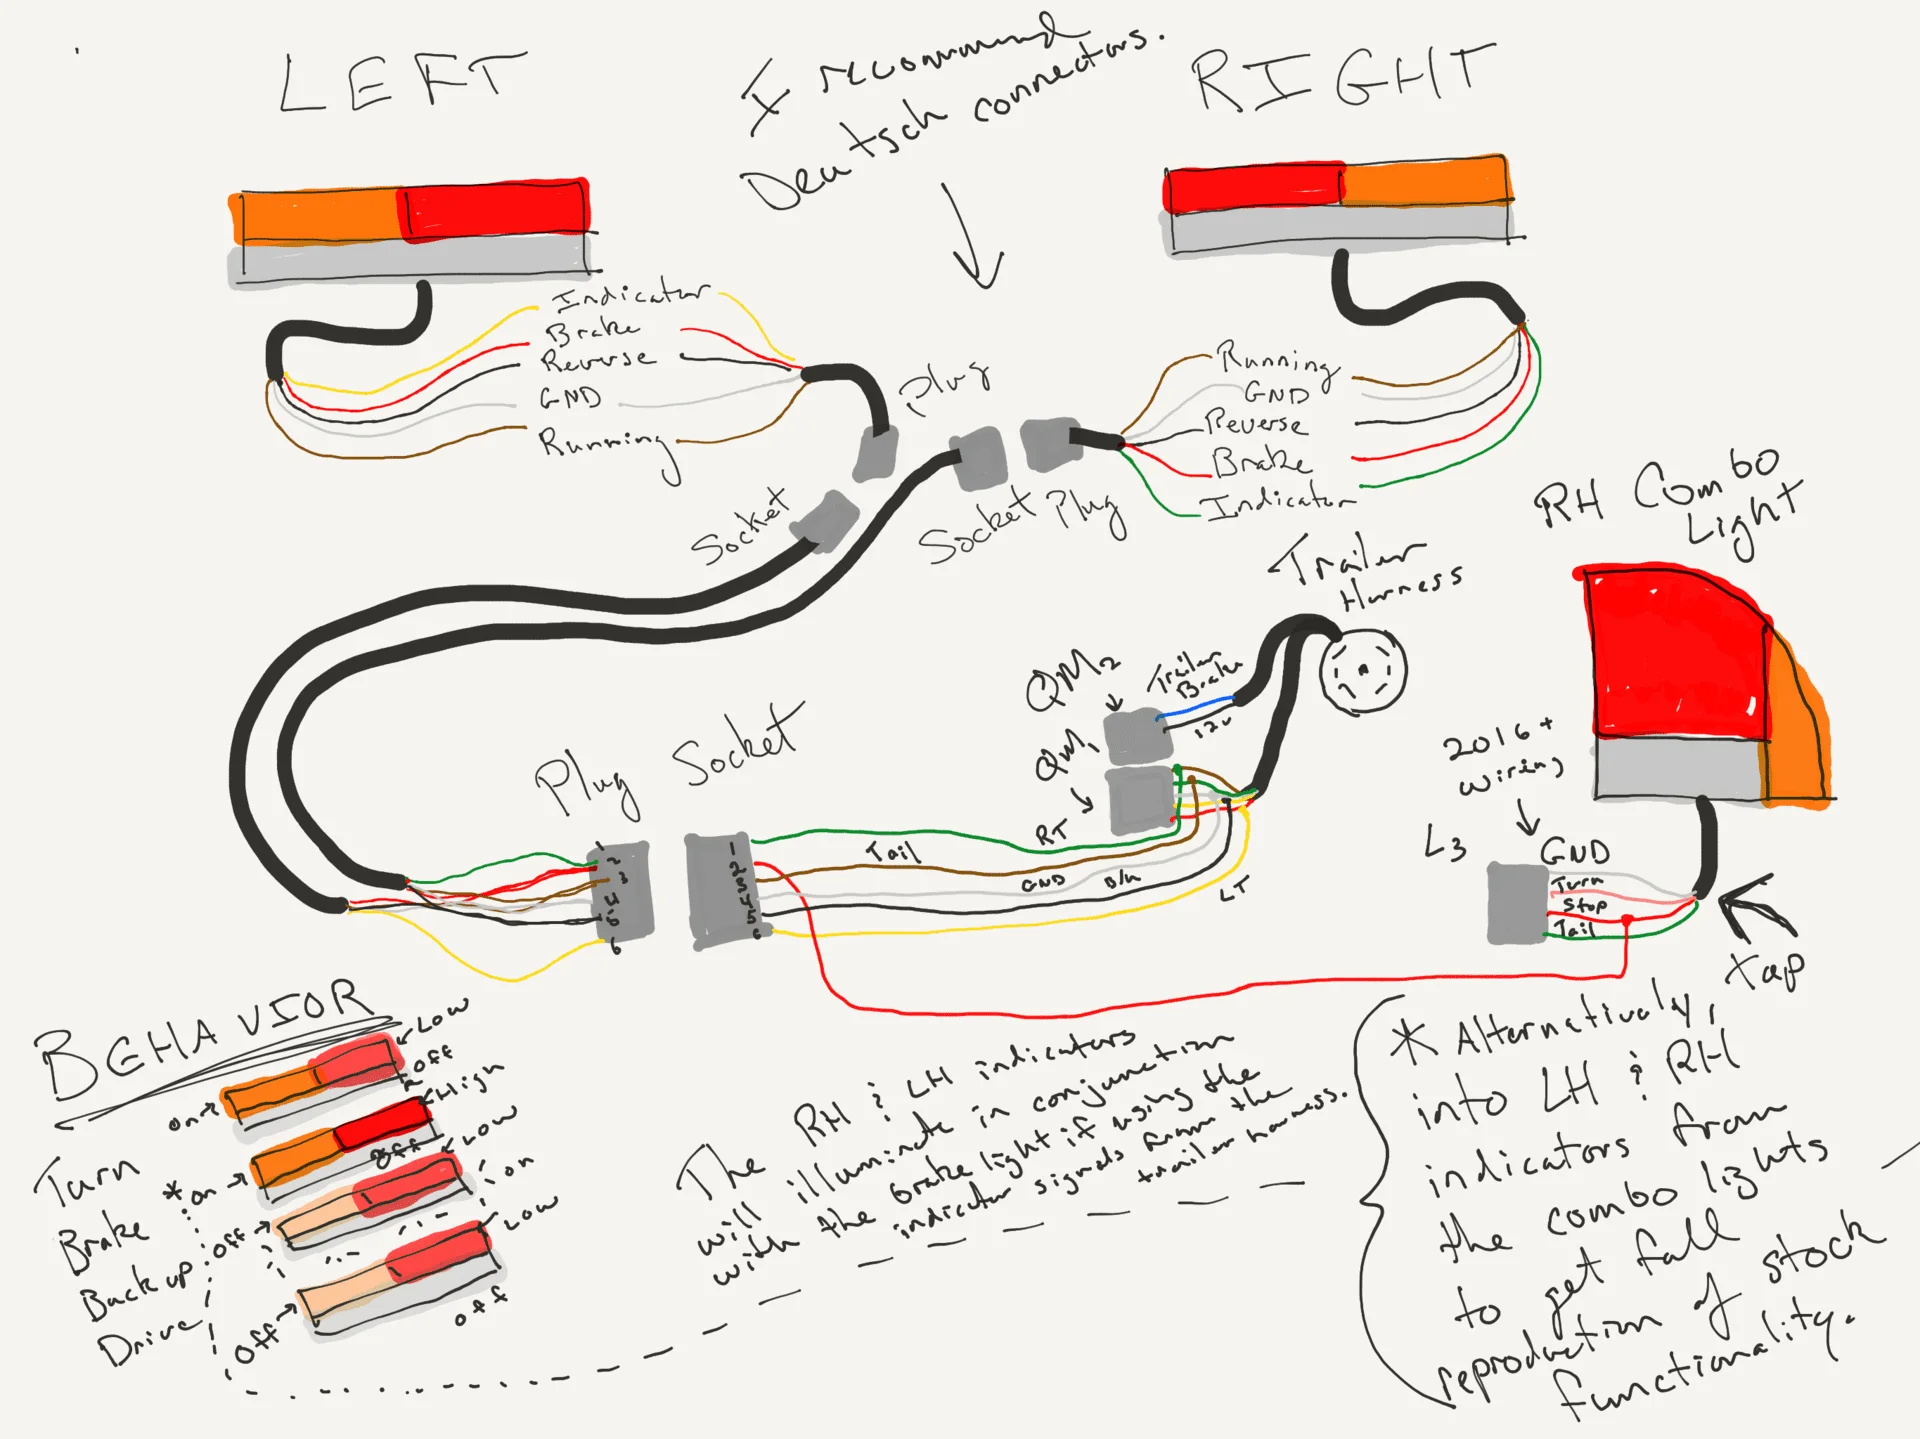 LEFT
I recommend
Deutsch connectors.
RIGHT
Indicator
Brake
Reverse
GND
Running
Plug
Socket
Socket Plug
Running
GND
Reverse
Brake
Indicator
RH Combo
Light
Trailer
Harness
QM2
Trailer
Brake
12v
QM1
RT
Plug Socket
1
2
3
4
5
6
1
2
3
4
5
6
Tail
GND
B/U
LT
2016+
wiring
L3
GND
Turn
Stop
Tail
BEHAVIOR
Low
Off
on
High
Off
* on
Low
on
Off
Low
Off
Off
Turn
Brake
Backup
Drive
The RH & LH indicators
will illuminate in conjunction
with the brake light if using the
indicator signals from the
trailer harness.
* Alternatively, tap
into LH & RH
indicators from
the combo lights
to get full
reproduction of stock
functionality.